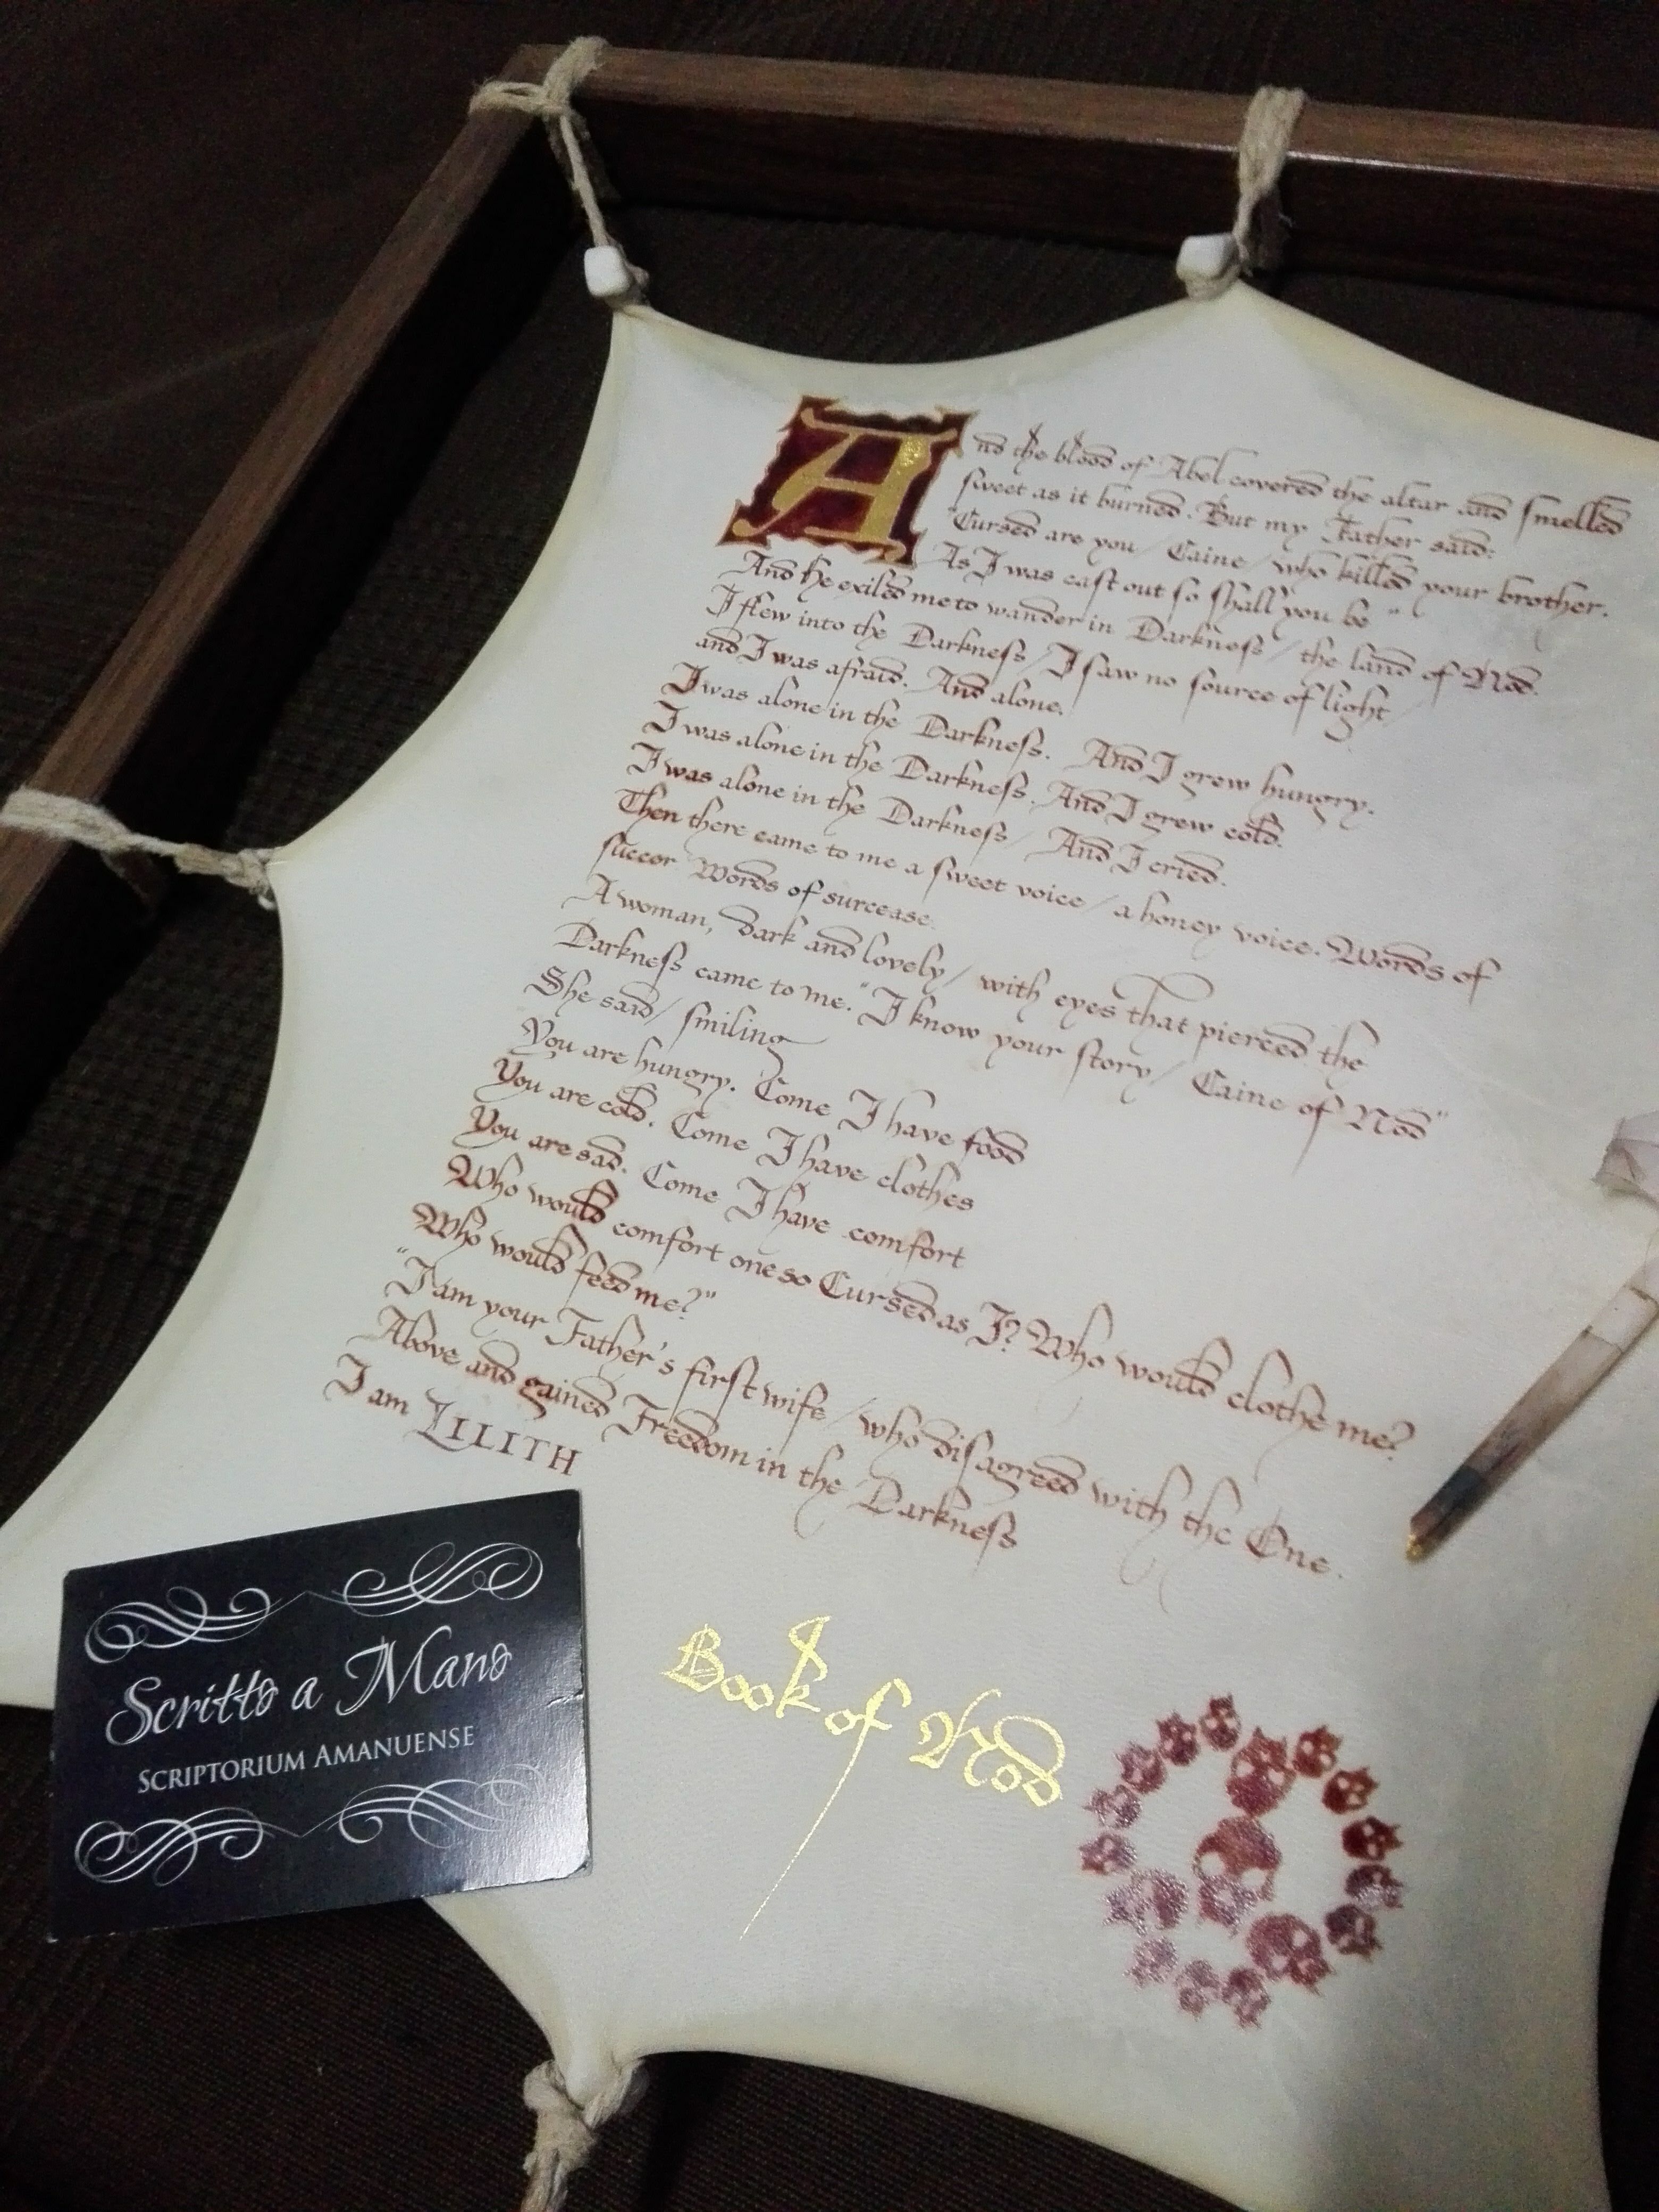 And the blood of Abel covered the altar and smelled
sweet as it burned. But my Father said:
"Cursed are you / Caine / who killed your brother.
As I was cast out so shall you be"
And he exiled me to wander in Darkness / the land of Nod.
I flew into the Darkness / I saw no source of light /
and I was afraid. And alone.
I was alone in the Darkness. And I grew hungry.
I was alone in the Darkness. And I grew cold.
I was alone in the Darkness / And I cried.
Then there came to me a sweet voice / a honey voice. Words of
succor. Words of surcease.
A woman, dark and lovely / with eyes that pierced the
Darkness came to me. "I know your story / Caine of Nod"
She said / smiling
You are hungry. Come I have food
You are cold. Come I have clothes
You are sad. Come I have comfort
Who would comfort one so Cursed as I? Who would clothe me?
Who would feed me?"
"I am your Father's first wife / who disagreed with the One.
Above and gained Freedom in the Darkness
I am LILITH
Book of Nod
Scritto a Mano
SCRIPTORIUM AMANUENSE